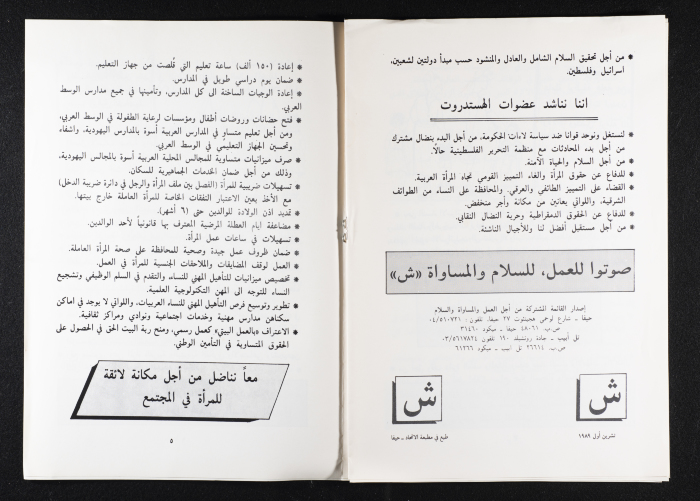 * من أجل تحقيق السلام الشامل والعادل والمنشود حسب مبدأ دولتين لشعبين،
اسرائيل وفلسطين.
اننا نناشد عضوات الهستدروت
* لنستغل ونوحد قوانا ضد سياسة لاءات الحكومة، من أجل البدء بنضال مشترك
من أجل بدء المحادثات مع منظمة التحرير الفلسطينية حالًا.
* من أجل السلام والحياة الآمنة.
* للدفاع عن حقوق المرأة والغاء التمييز القومي تجاه المرأة العربية.
* القضاء على التمييز الطائفي والعرقي، والمحافظة على النساء من الطوائف
الشرقية، واللواتي يعانين من مكانة وأجر منخفض.
* للدفاع عن الحقوق الدمقراطية وحرية النضال النقابي.
* من أجل مستقبل أفضل لنا وللأجيال الناشئة.
صوتوا للعمل، للسلام والمساواة «ش»
اصدار القائمة المشتركة من أجل العمل والمساواة والسلام
حيفا - شارع لوحمي هجيتئوت ٢٧ حيفا. تلفون : ٠٤/٥١٠٧٢١
ص.ب. ٤٨٠٦١ حيفا - ميكود ٣١٤٦٠
تل أبيب - جادة روتشيلد ١٩٠ تلفون ٠٣/٥٦١٧٨٢٤
ص.ب. ٢٦٦١٤ تل أبيب - ميكود ٦١٢٦٦
ش
ش
تشرين أول ١٩٨٩
طبع في مطبعة الاتحاد - حيفا
* إعادة (١٥٠ ألف) ساعة تعليم التي قُلصت من جهاز التعليم.
* ضمان يوم دراسي طويل في المدارس.
* إعادة الوجبات الساخنة الى كل المدارس، وتأمينها في جميع مدارس الوسط
العربي.
* فتح حضانات وروضات أطفال ومؤسسات لرعاية الطفولة في الوسط العربي،
ومن أجل تعليم متساوٍ في المدارس العربية أسوة بالمدارس اليهودية، وانشاء
وتحسين الجهاز التعليمي في الوسط العربي.
* صرف ميزانيات متساوية للمجالس المحلية العربية أسوة بالمجالس اليهودية،
وذلك من أجل ضمان الخدمات الجماهيرية للسكان.
* تسهيلات ضريبية للمرأة (الفصل بين ملف المرأة والرجل في دائرة ضريبة الدخل)
مع الأخذ بعين الاعتبار النفقات الخاصة للمرأة العاملة خارج بيتها.
* تمديد اذن الولادة للوالدين حتى (٦ أشهر).
* مضاعفة ايام العطلة المرضية المعترف بها قانونياً لأحد الوالدين.
* تسهيلات في ساعات عمل المرأة.
* ضمان ظروف عمل جيدة وصحية للمحافظة على صحة المرأة العاملة.
* العمل لوقف المضايقات والملاحقات الجنسية للمرأة في العمل.
* تخصيص ميزانيات للتأهيل المهني للنساء والتقدم في السلم الوظيفي وتشجيع
النساء للتوجه الى المهن التكنولوجية العلمية.
* تطوير وتوسيع فرص التأهيل المهني للنساء العربيات، واللواتي لا يوجد في اماكن
سكناهن مدارس مهنية وخدمات اجتماعية ونوادي ومراكز ثقافية.
* الاعتراف «بالعمل البيتي» كعمل رسمي، ومنح ربة البيت الحق في الحصول على
الحقوق المتساوية في التأمين الوطني.
معاً نناضل من أجل مكانة لائقة
للمرأة في المجتمع
٥